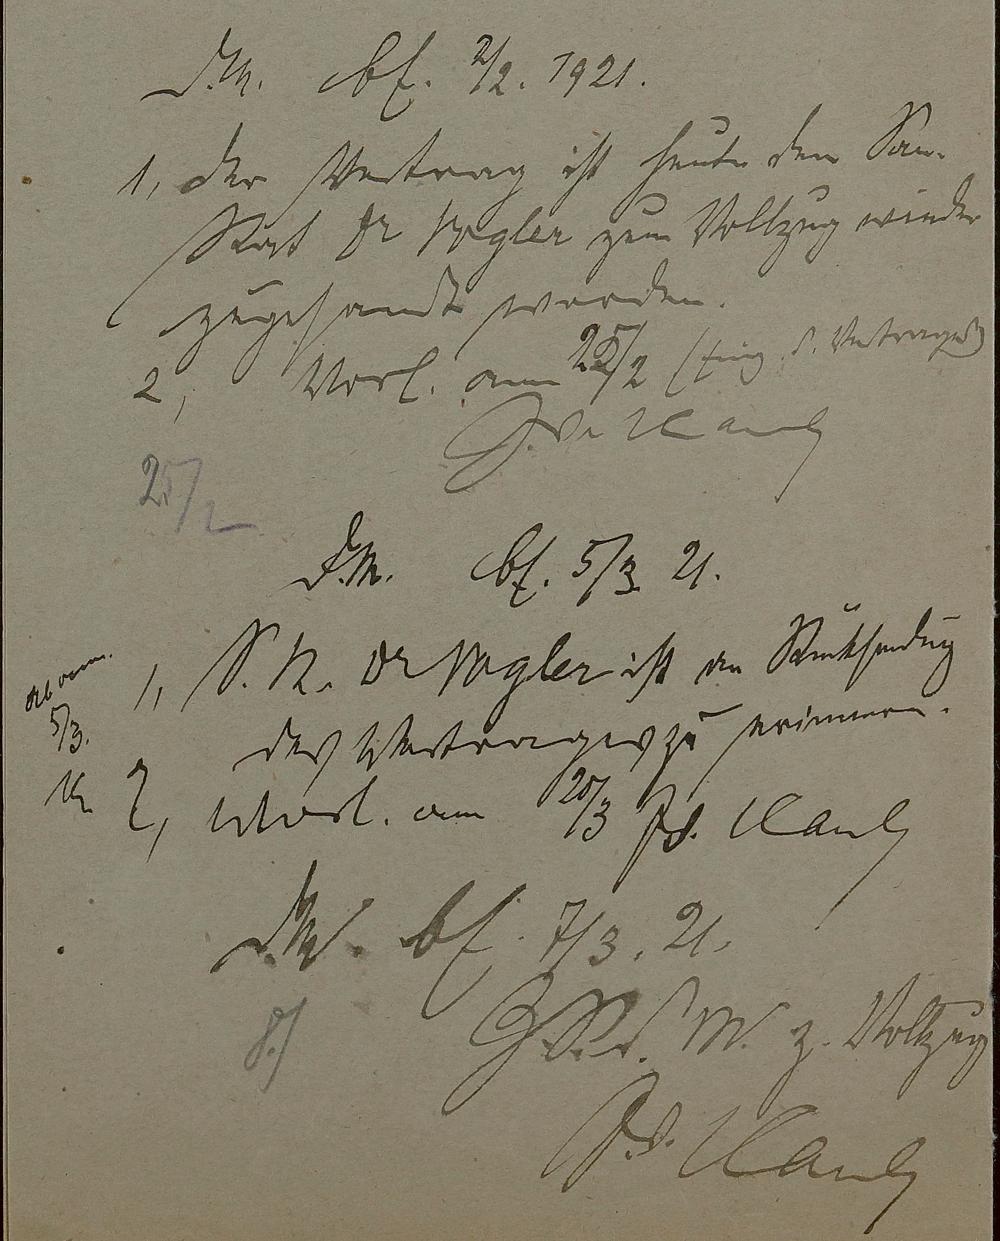 D.M. bf. 2/2. 1921.
1, der Vertrag ist heute dem San.
Rat Dr Vogler zum Vollzug wieder
zugesandt worden.
2, Vorl. am 25/2 (Eing. d. Vertrages)
25/2
D.M. bf. 5/3. 21.
1, S. R. Dr Vogler ist an Rücksendung
des Vertrages zu erinnern.
5/3.
2, Vorl. am 20/3
D.M. bf. 7/3. 21.
z. Vollzug